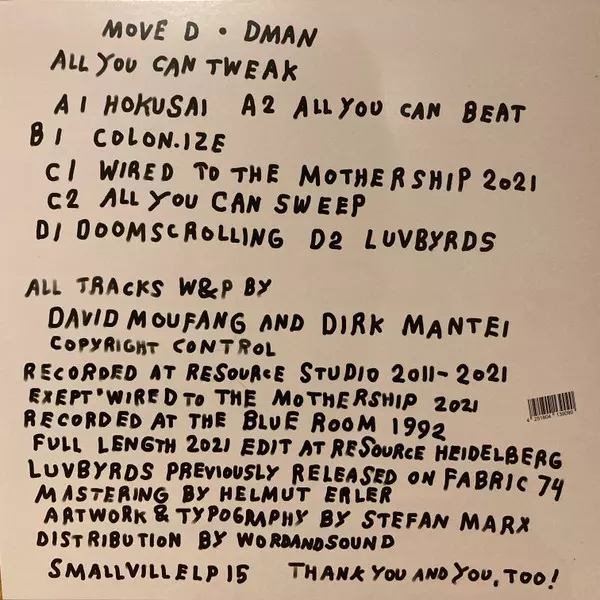 MOVE D • DMAN
ALL YOU CAN TWEAK
A1 HOKUSAI A2 ALL YOU CAN BEAT
B1 COLON.IZE
C1 WIRED TO THE MOTHERSHIP 2021
C2 ALL YOU CAN SWEEP
D1 DOOMSCROLLING D2 LUVBYRDS
ALL TRACKS W&P BY
DAVID MOUFANG AND DIRK MANTEI
COPYRIGHT CONTROL
RECORDED AT RESOURCE STUDIO 2011-2021
EXEPT "WIRED TO THE MOTHERSHIP 2021
RECORDED AT THE BLUE ROOM 1992
FULL LENGTH 2021 EDIT AT RESOURCE HEIDELBERG
LUVBYRDS PREVIOUSLY RELEASED ON FABRIC 74
MASTERING BY HELMUT ERLER
ARTWORK & TYPOGRAPHY BY STEFAN MARX
DISTRIBUTION BY WORDANDSOUND
SMALLVILLELP15 THANK YOU AND YOU, TOO!